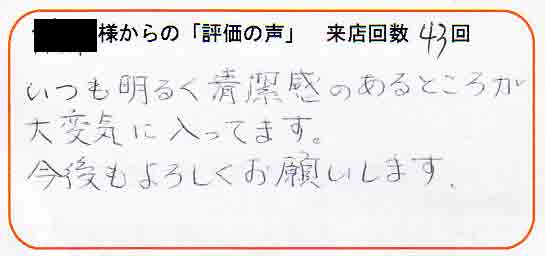 様からの「評価の声」 来店回数 43回
いつも明るく清潔感のあるところが
大変気に入ってます。
今後もよろしくお願いします.